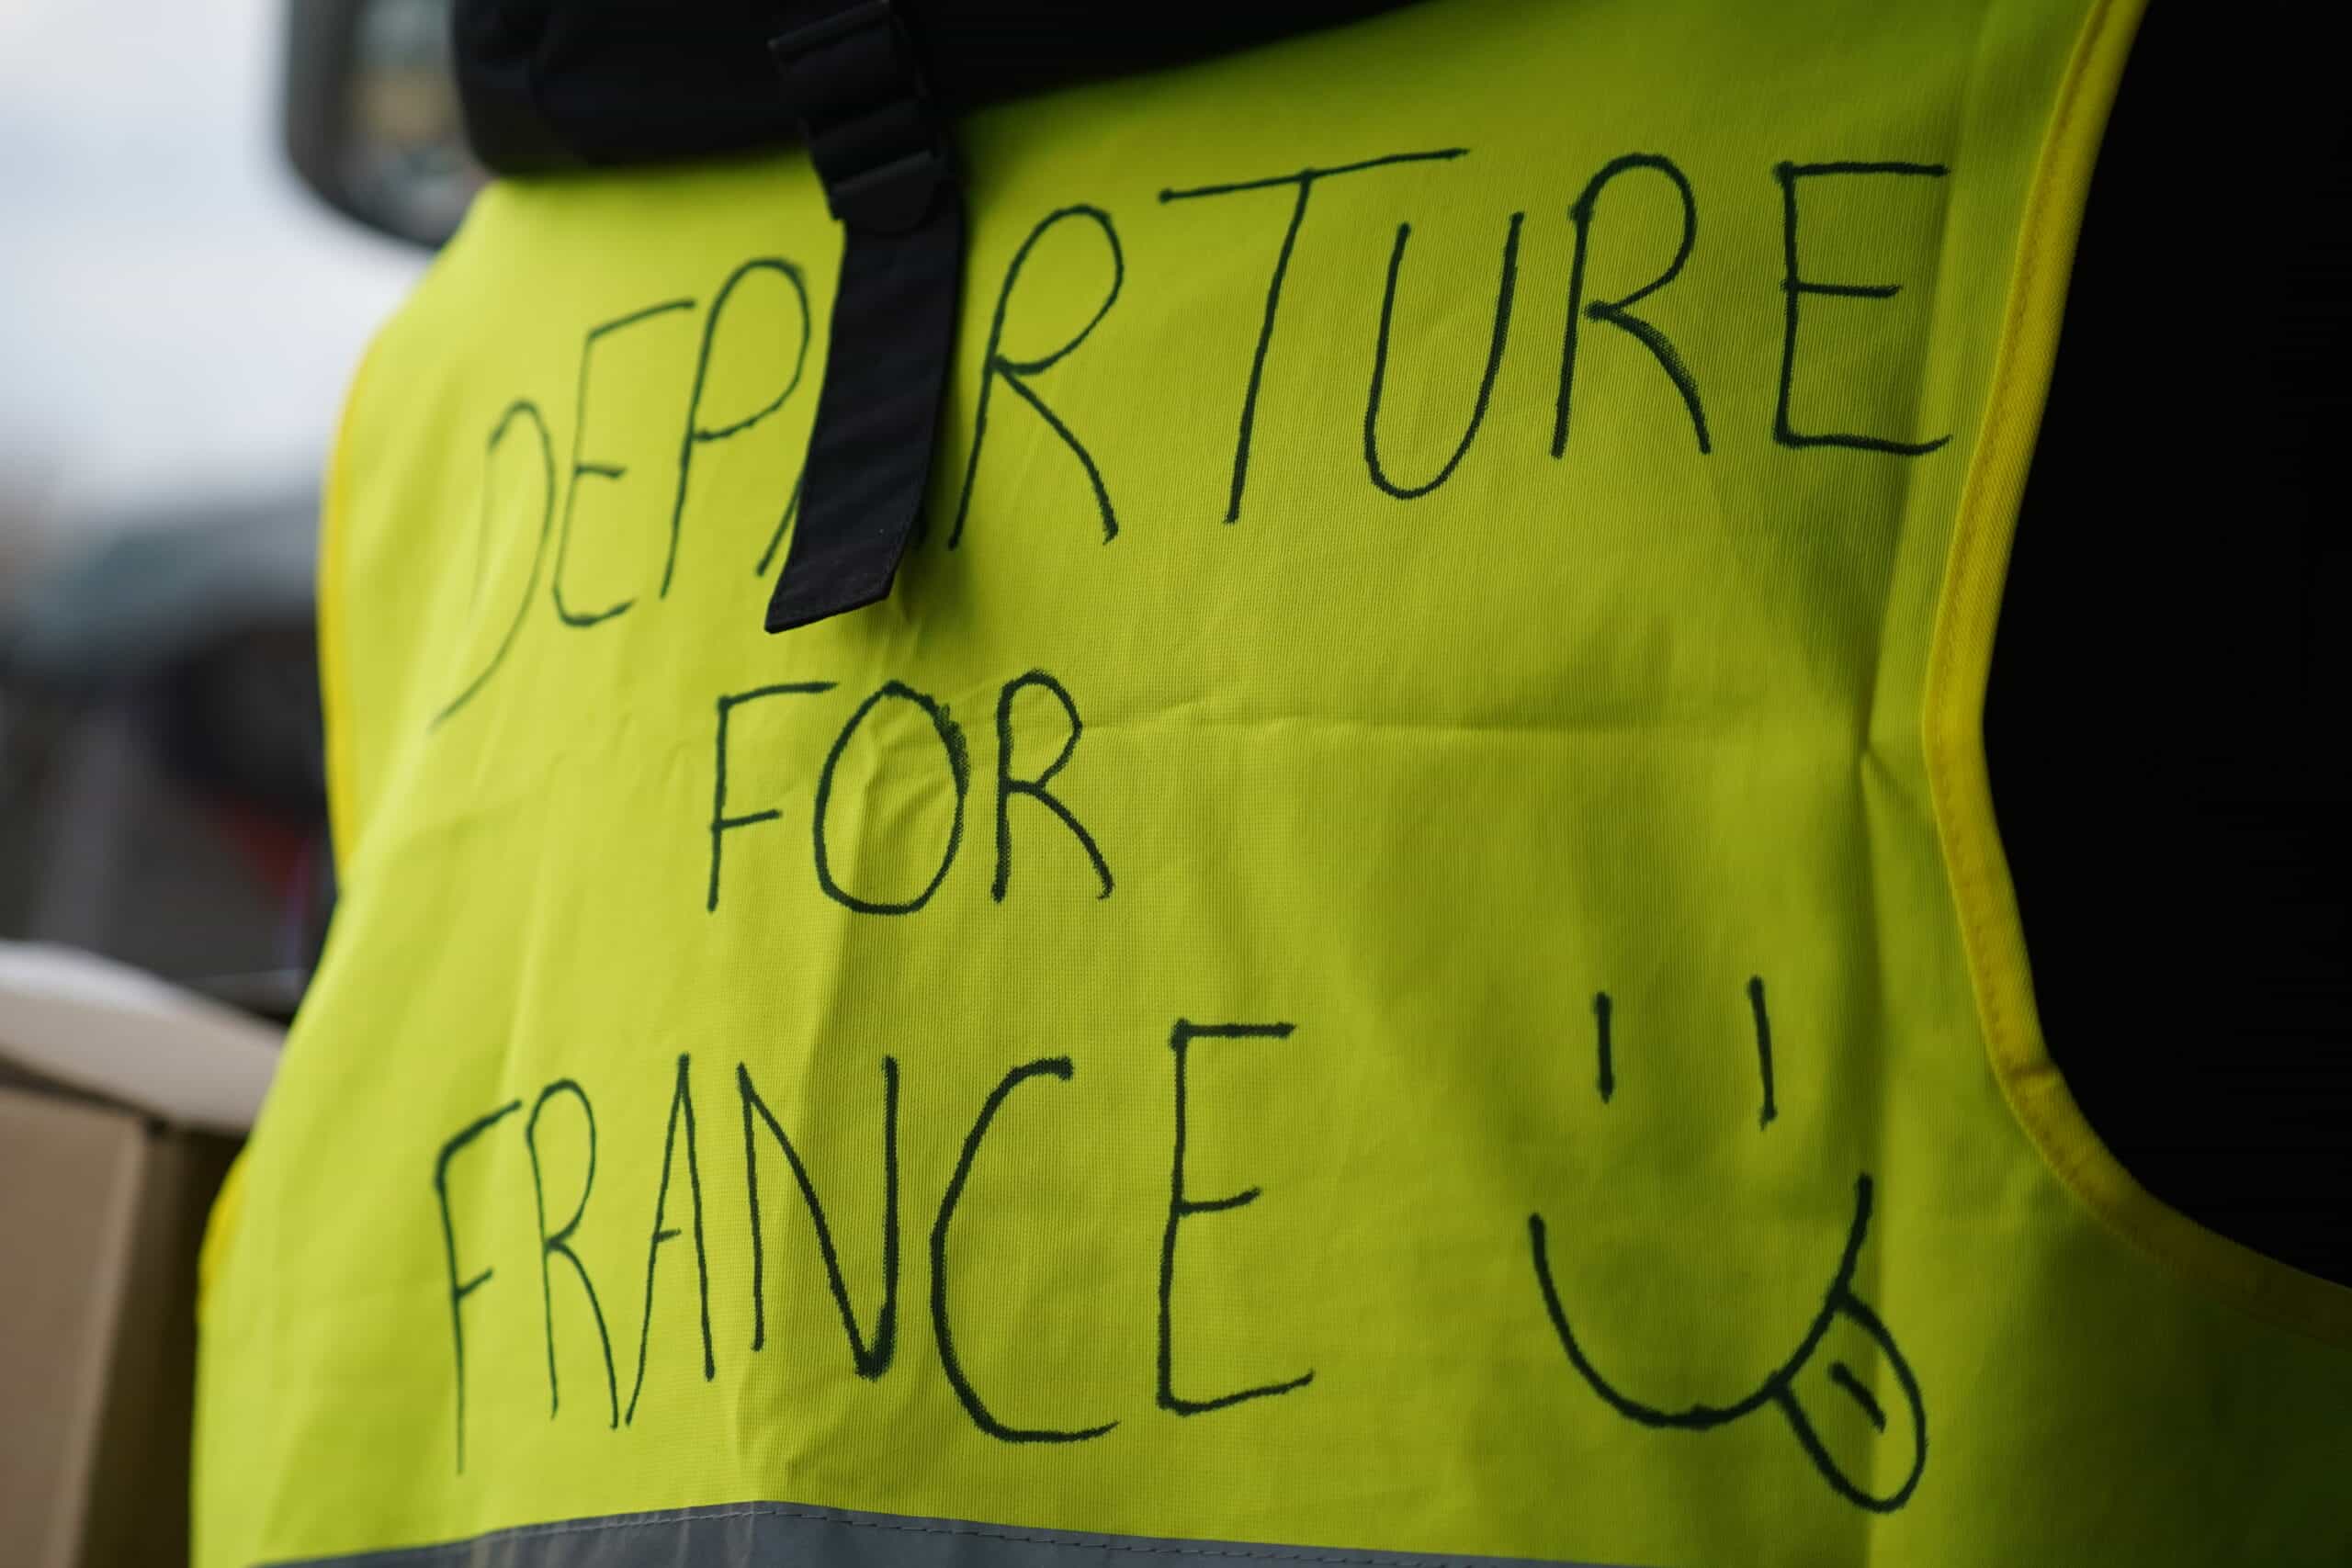 DEPARTURE
FOR
FRANCE